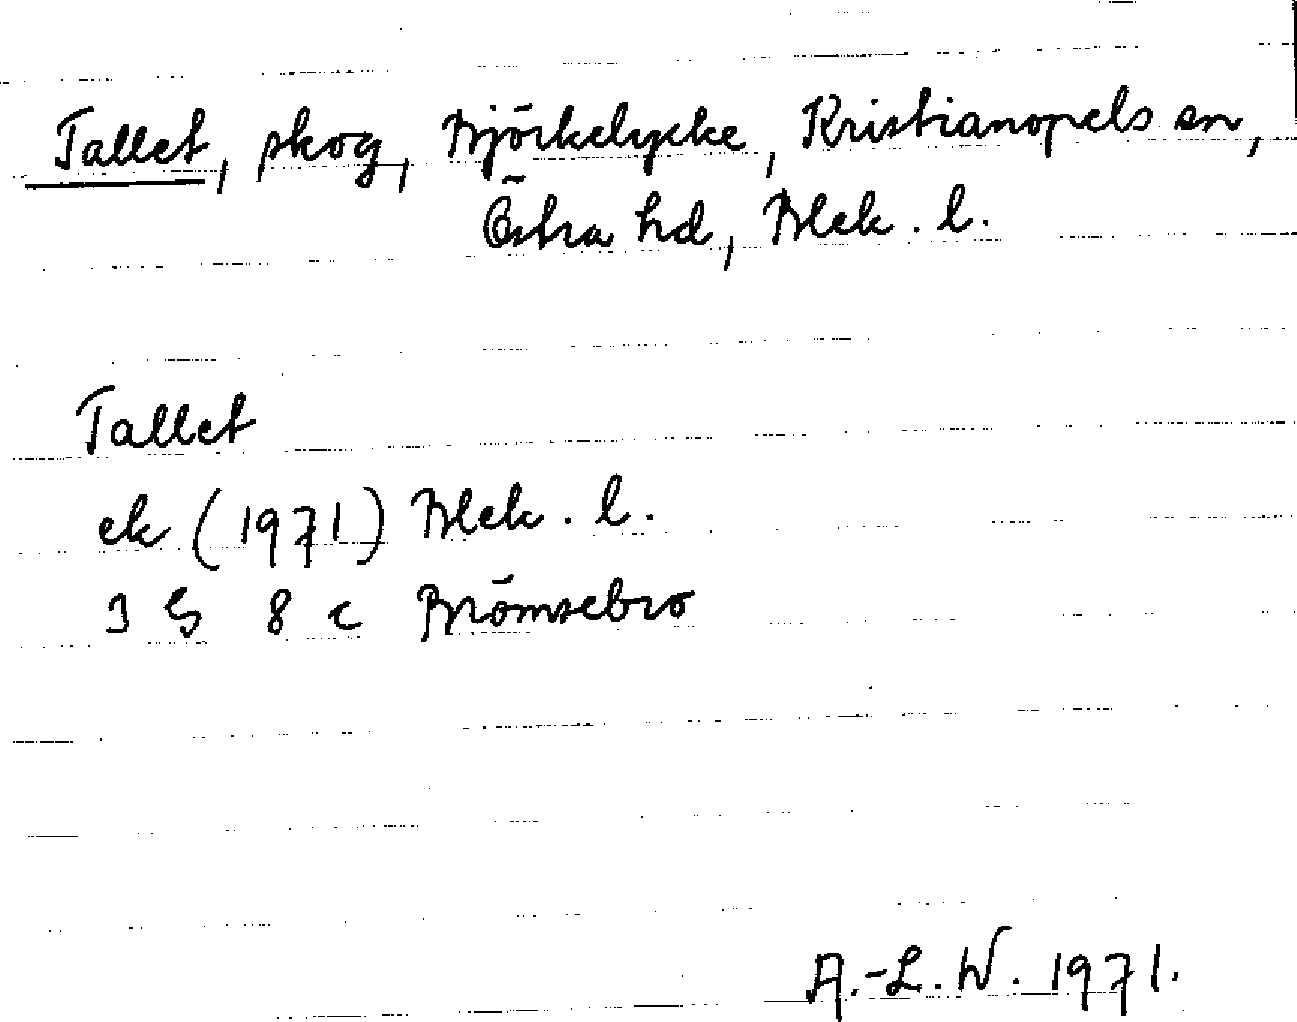 Tallet, skog, Björkelycke, Kristianopels sn,
Östra hd, Blek. l.
Tallet
ek (1971) Blek. l.
3 G 8 c Brömsebro
A.-L. W. 1971.